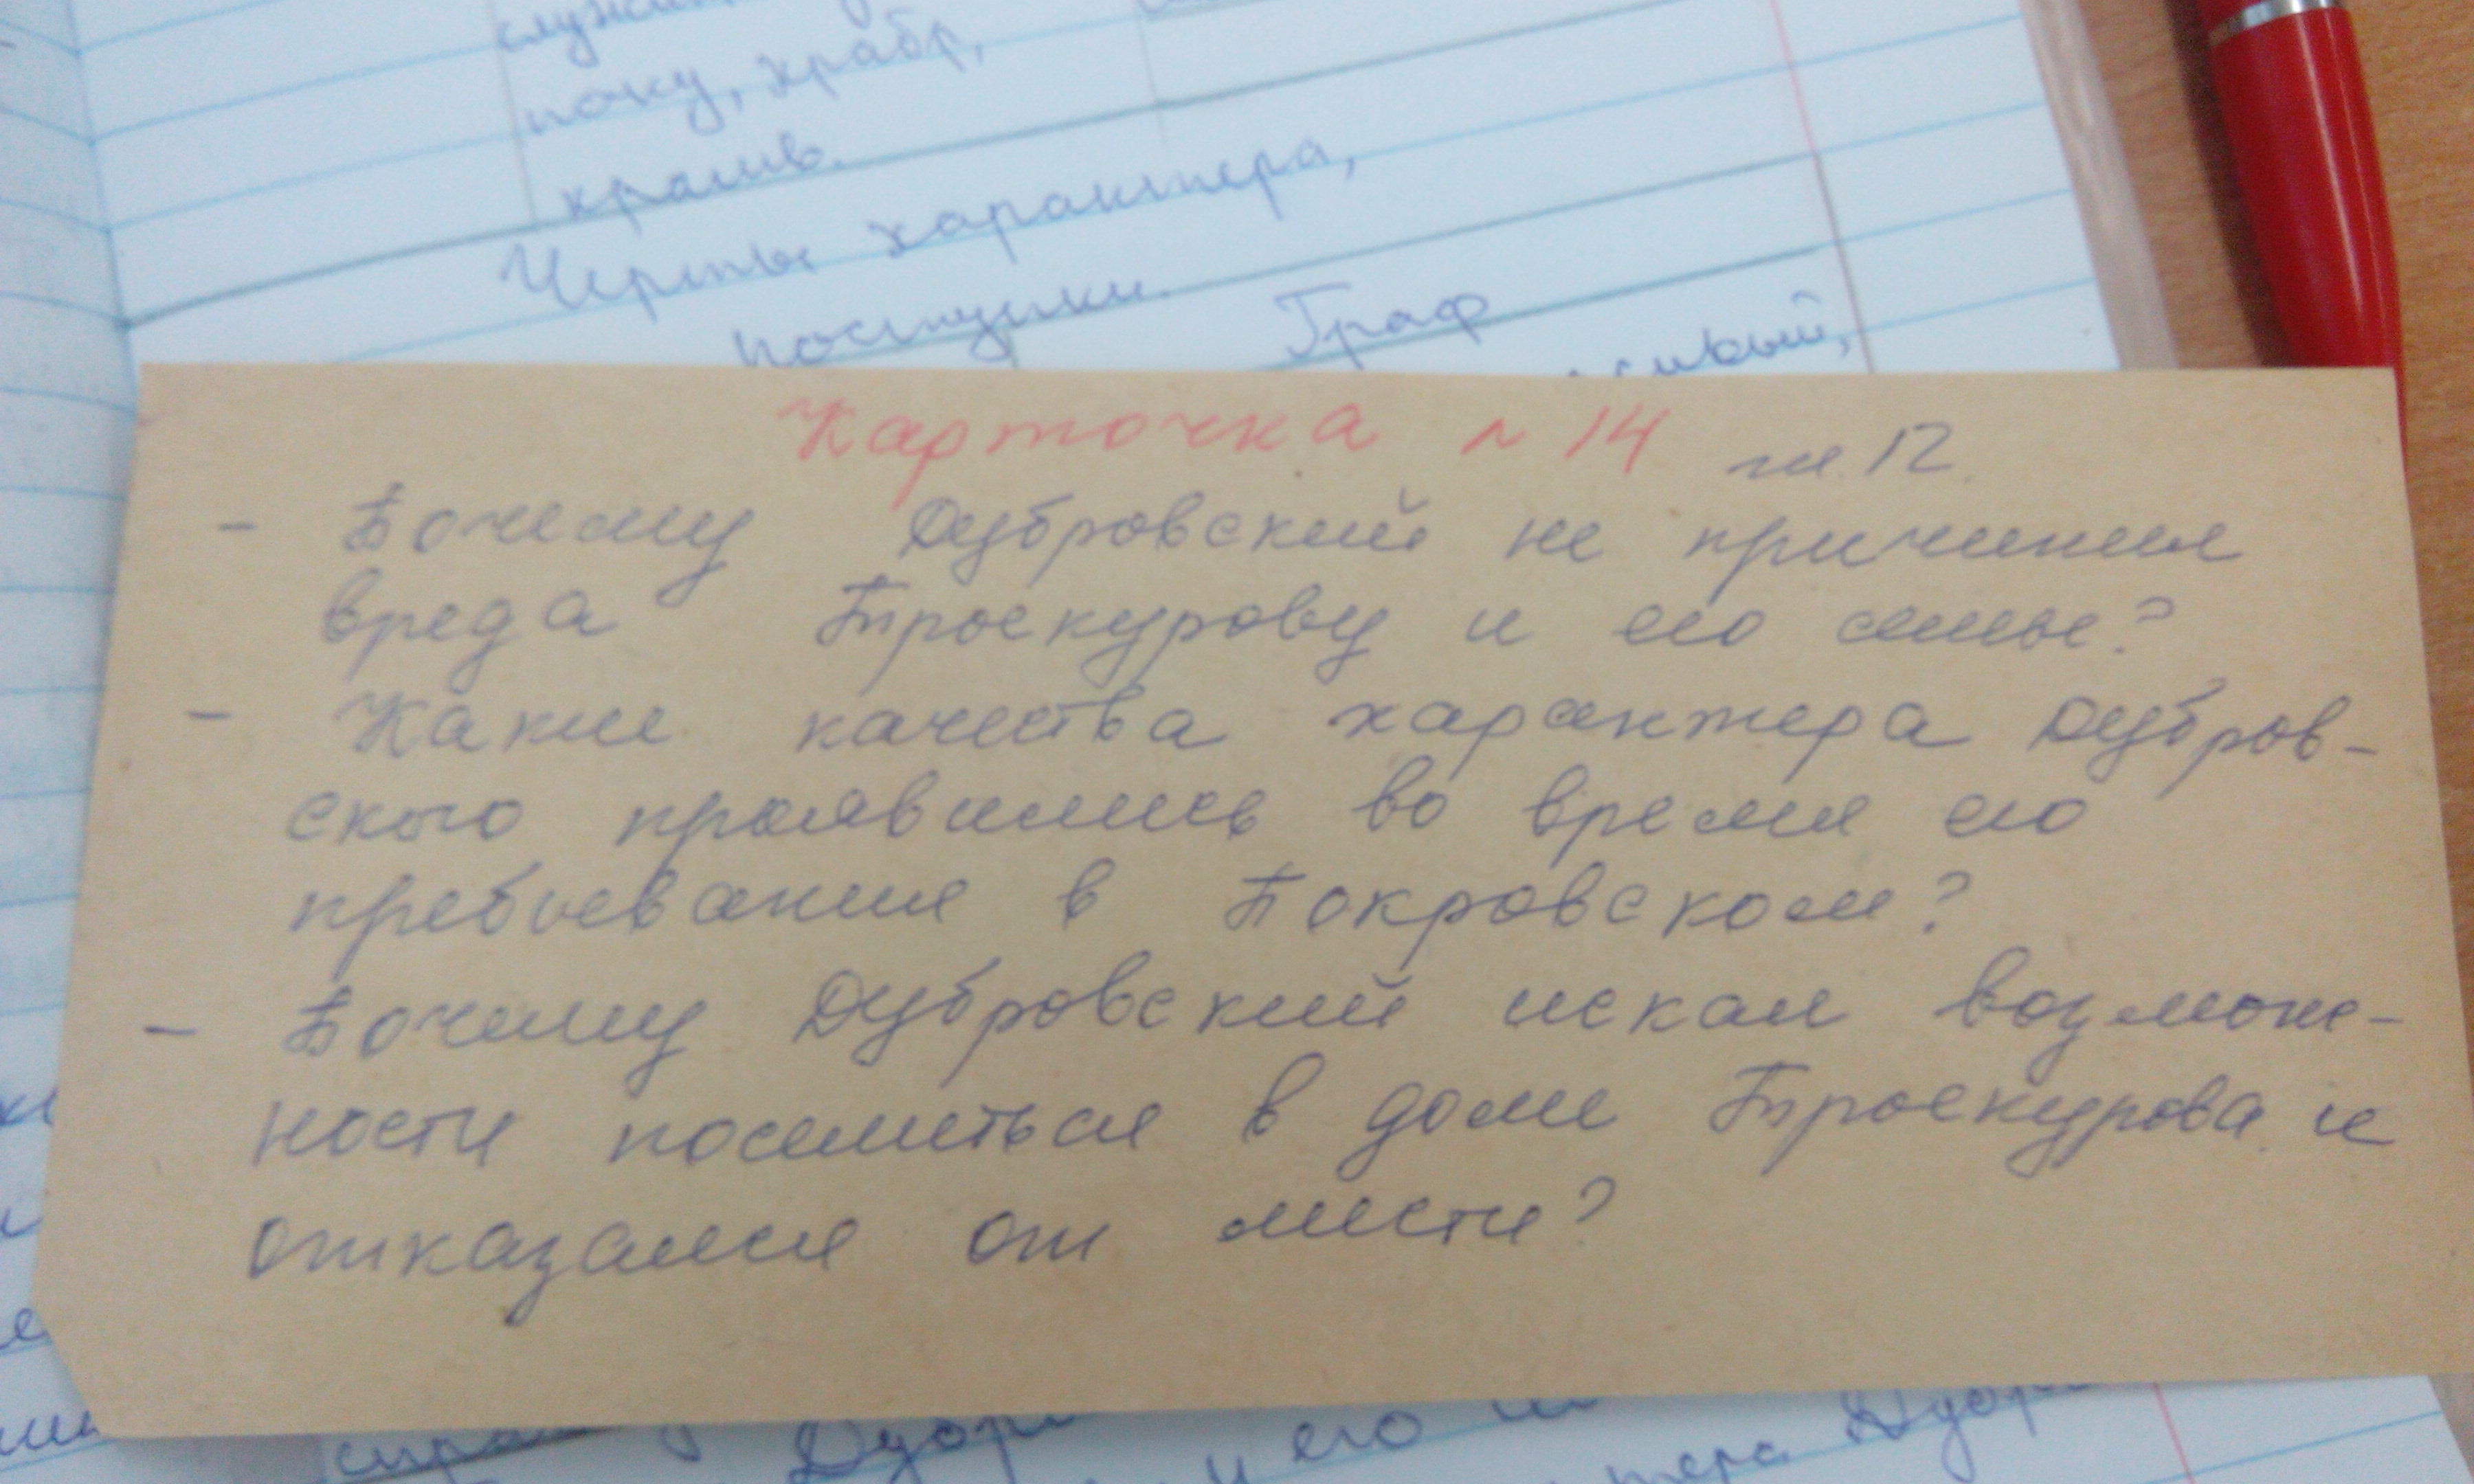 поку, храбр,
красив.
Черты характера,
поступки.
Граф
Карточка № 14 гл. 12.
- Почему Дубровский не причинил
вреда Троекурову и его семье?
- Какие качества характера Дубров-
ского проявились во время его
пребывания в Покровском?
- Почему Дубровский искал возмож-
ности поселиться в доме Троекурова и
отказался от мести?
и его